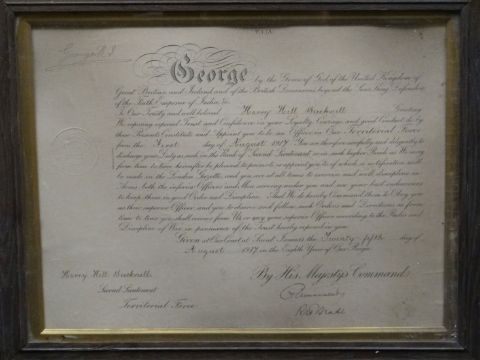 George R.I.
George by the Grace of God, of the United Kingdom of
Great Britain and Ireland and of the British Dominions beyond the Seas King, Defender
of the Faith, Emperor of India, &c.
To Our Trusty and well beloved Harry Hill Bucknell Greeting
We reposing especial Trust and Confidence in your Loyalty, Courage, and good Conduct, do by
these Presents Constitute and Appoint you to be an Officer in Our Territorial Force
from the First day of August 1917. You are therefore carefully and diligently to
discharge your Duty as such in the Rank of Second Lieutenant or in such higher Rank as We may
from time to time hereafter be pleased to promote or appoint you to, of which a notification will
be made in the London Gazette, and you are at all times to exercise and well discipline in
Arms, both the inferior Officers and Men serving under you and use your best endeavours
to keep them in good Order and Discipline. And We do hereby Command them to Obey you
as their superior Officer, and you to observe and follow such Orders and Directions as from
time to time you shall receive from Us, or any your superior Officer, according to the Rules and
Discipline of War, in pursuance of the Trust hereby reposed in you.
Given at Our Court, at Saint James's, the Twenty fifth day of
August 1917 in the Eighth Year of Our Reign
By His Majesty's Command
Harry Hill Bucknell
Second Lieutenant
Territorial Force